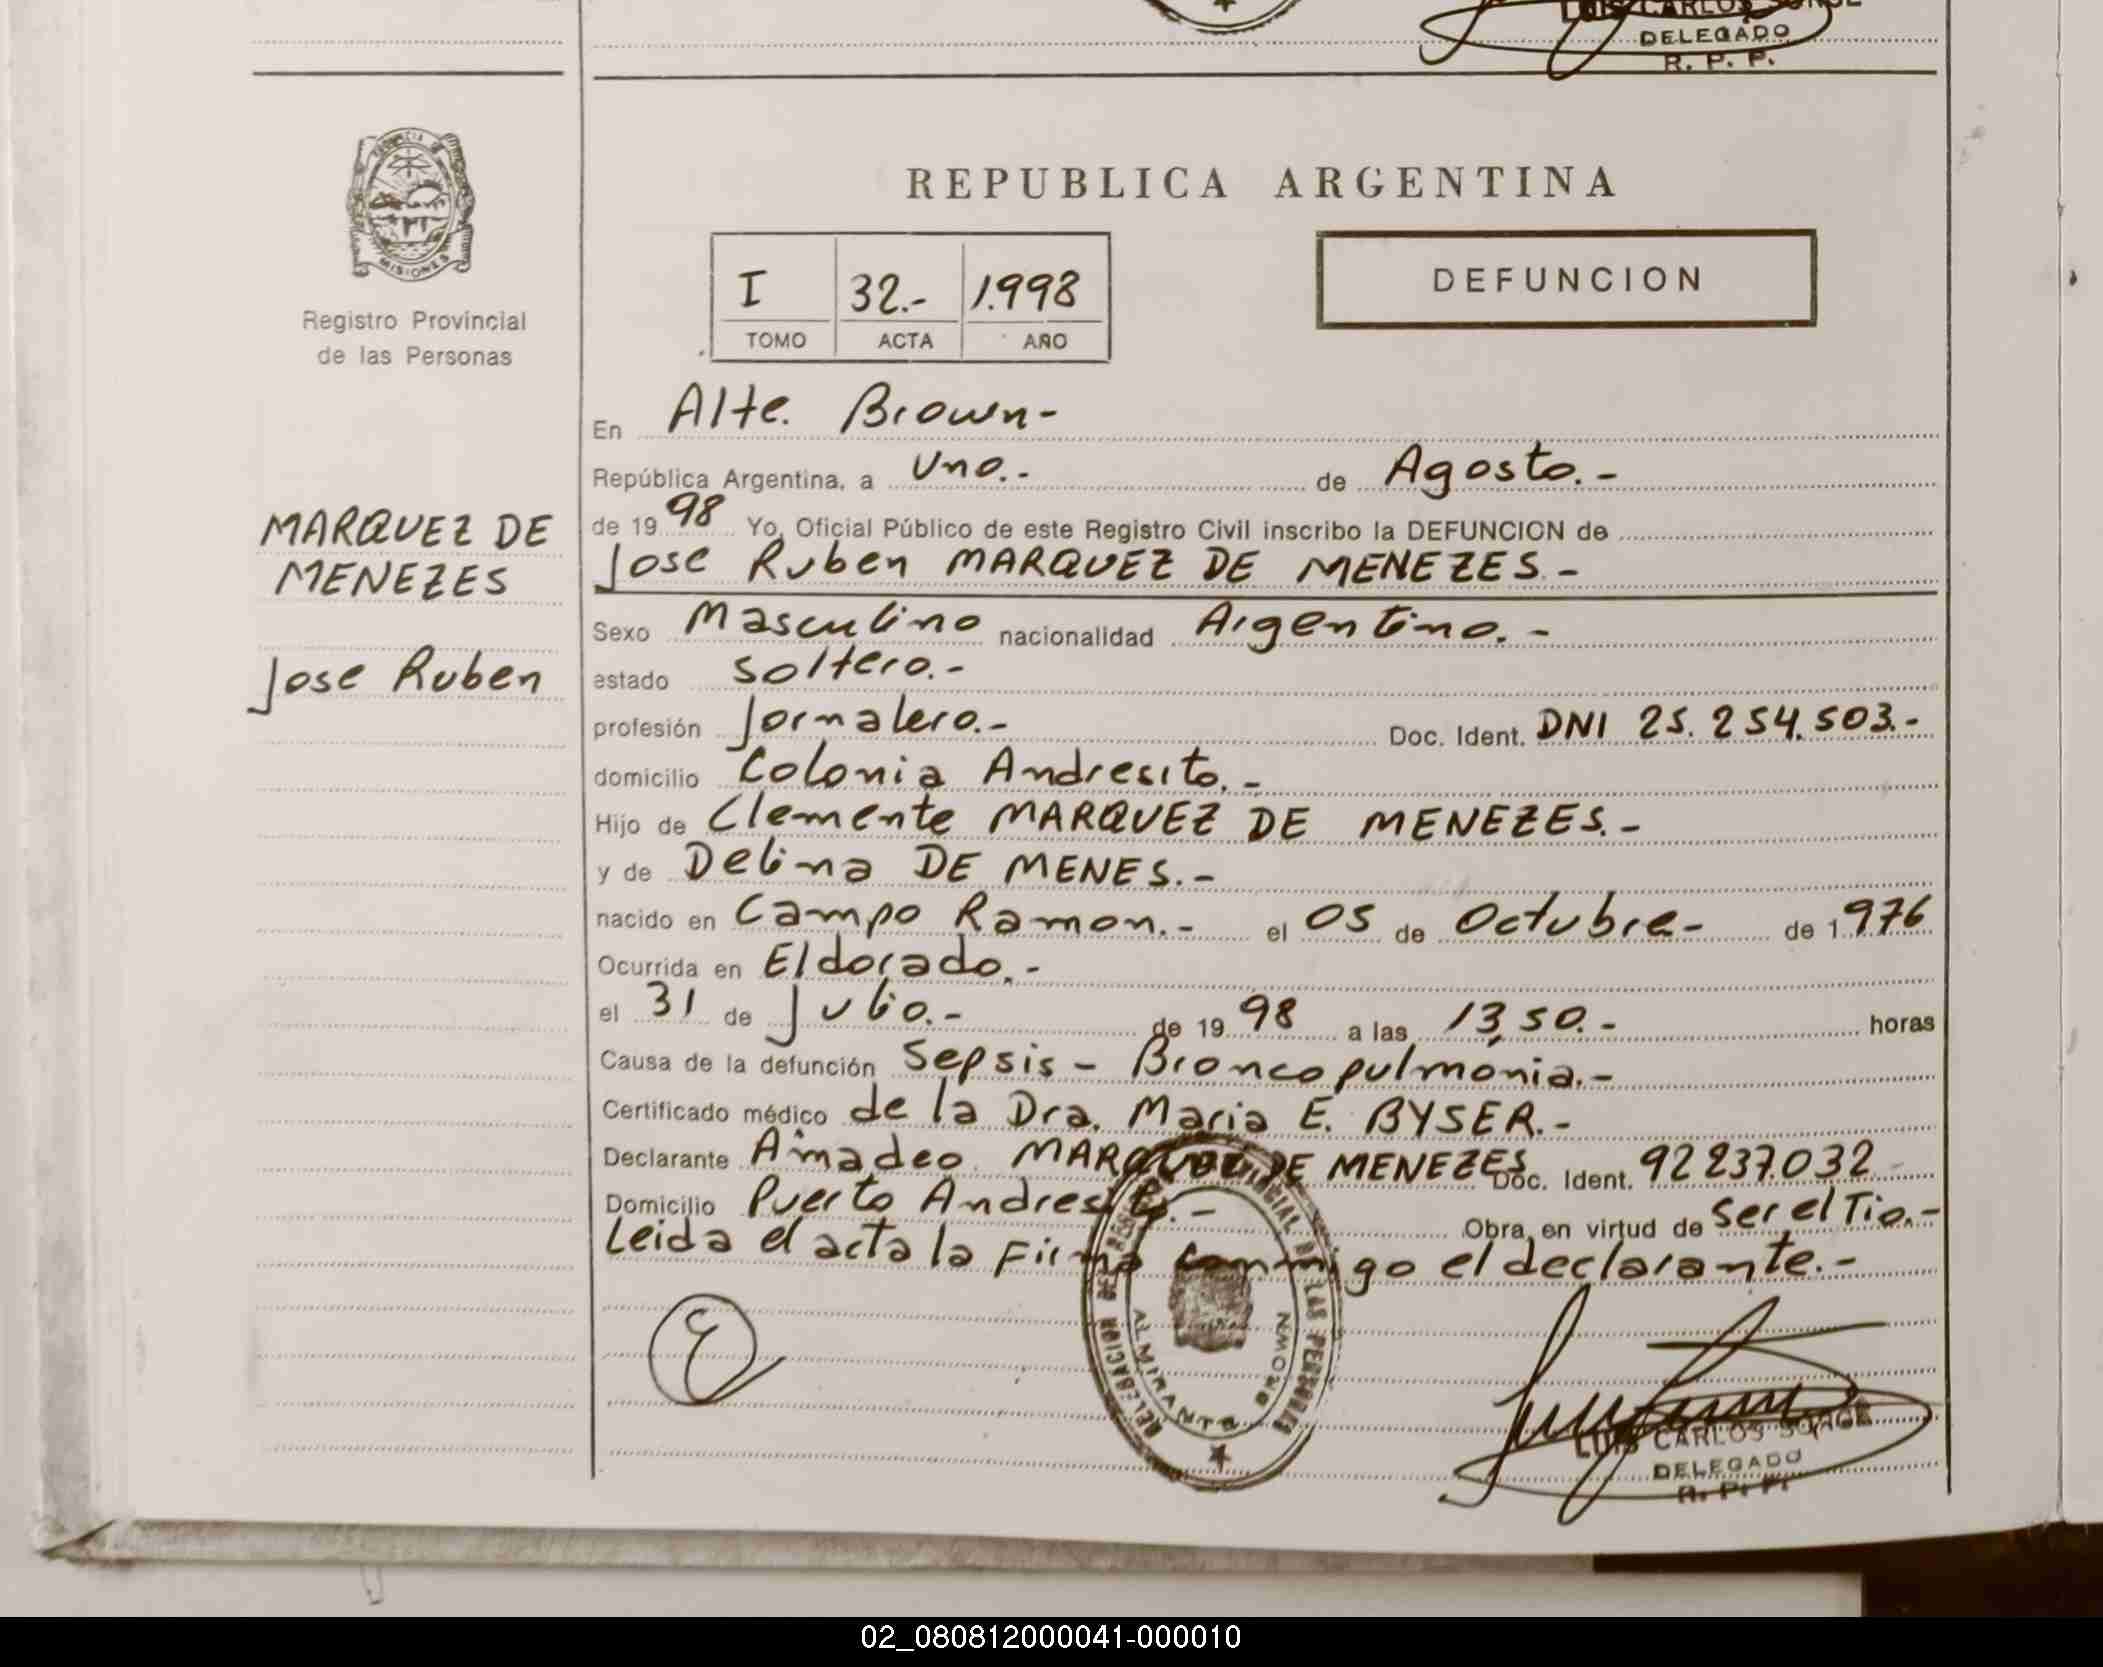 LUIS CARLOS SONGE
DELEGADO
R. P. P.
PROVINCIA DE
MISIONES
Registro Provincial
de las Personas
REPUBLICA ARGENTINA
I 32.- 1.998
TOMO ACTA AÑO
DEFUNCION
MARQUEZ DE
MENEZES
Jose Ruben
En Alte. Brown-
República Argentina, a Uno.- de Agosto.-
de 19 98 Yo, Oficial Público de este Registro Civil inscribo la DEFUNCION de
Jose Ruben MARQUEZ DE MENEZES.-
Sexo Masculino nacionalidad Argentino.-
estado Soltero.-
profesión Jornalero.- Doc. Ident. DNI 25.254.503.-
domicilio Colonia Andresito.-
Hijo de Clemente MARQUEZ DE MENEZES.-
y de Delina DE MENES.-
nacido en Campo Ramon.- el 05 de Octubre- de 1 976
Ocurrida en Eldorado.-
el 31 de Julio.- de 19 98 a las 13,50.- horas
Causa de la defunción Sepsis - Broncopulmónia.-
Certificado médico de la Dra. Maria E. BYSER.-
Declarante Amadeo MARQUEZ DE MENEZES Doc. Ident. 92237.032
Domicilio Puerto Andresito.- Obra en virtud de Ser el Tio.-
Leida el acta la Firma conmigo el declarante.-
DELEGACION DEL REGISTRO PROVINCIAL DE LAS PERSONAS
ALMIRANTE BROWN
LUIS CARLOS SONGE
DELEGADO
R. P. P.
02_080812000041-000010